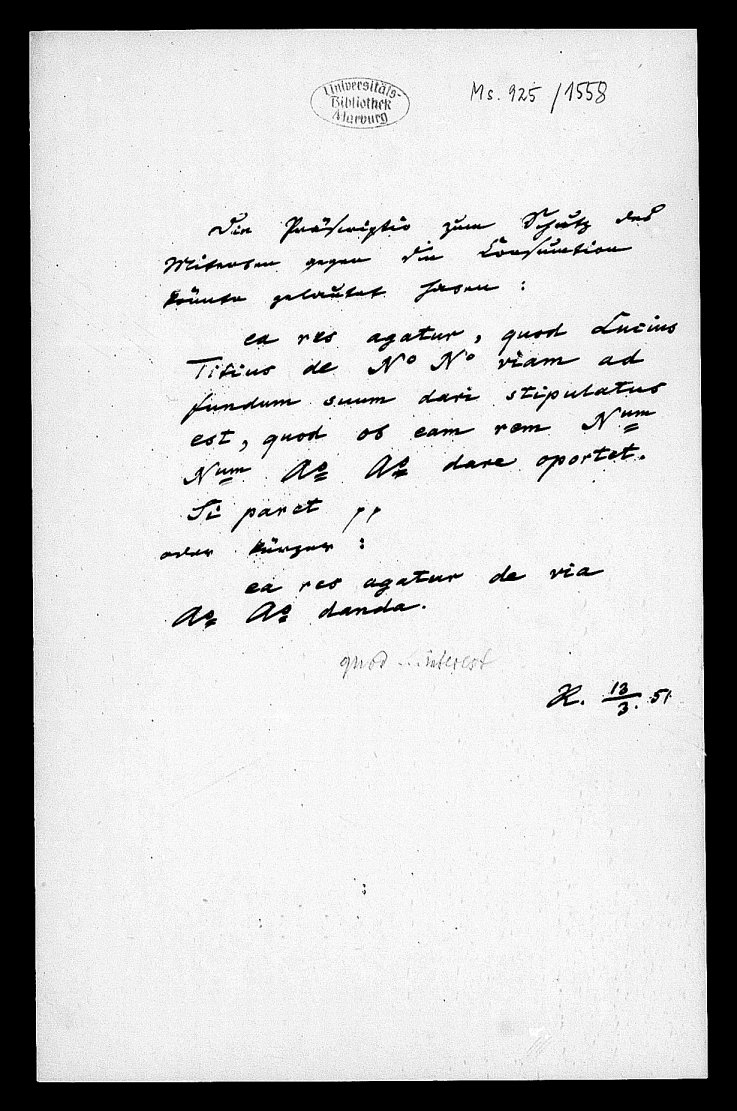 Universitäts-
Bibliothek
Marburg
Ms. 925/1558
Die Präscriptio zum Schutz des
Miterben gegen die Consumtion
könnte gelautet haben:
ea res agatur, quod Lucius
Titius de Nº Nº viam ad
fundum suum dari stipulatus
est, quod ob eam rem Num
Num Aº Aº dare oportet.
Si paret pp
oder kürzer:
ea res agatur de via
Aº Aº danda.
quod interest
R. 13/3. 51